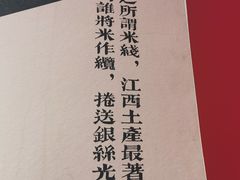 之所謂米綫，江西土產最著
誰將米作纜，捲送銀絲光